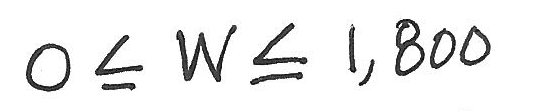 0 ≤ W ≤ 1,800